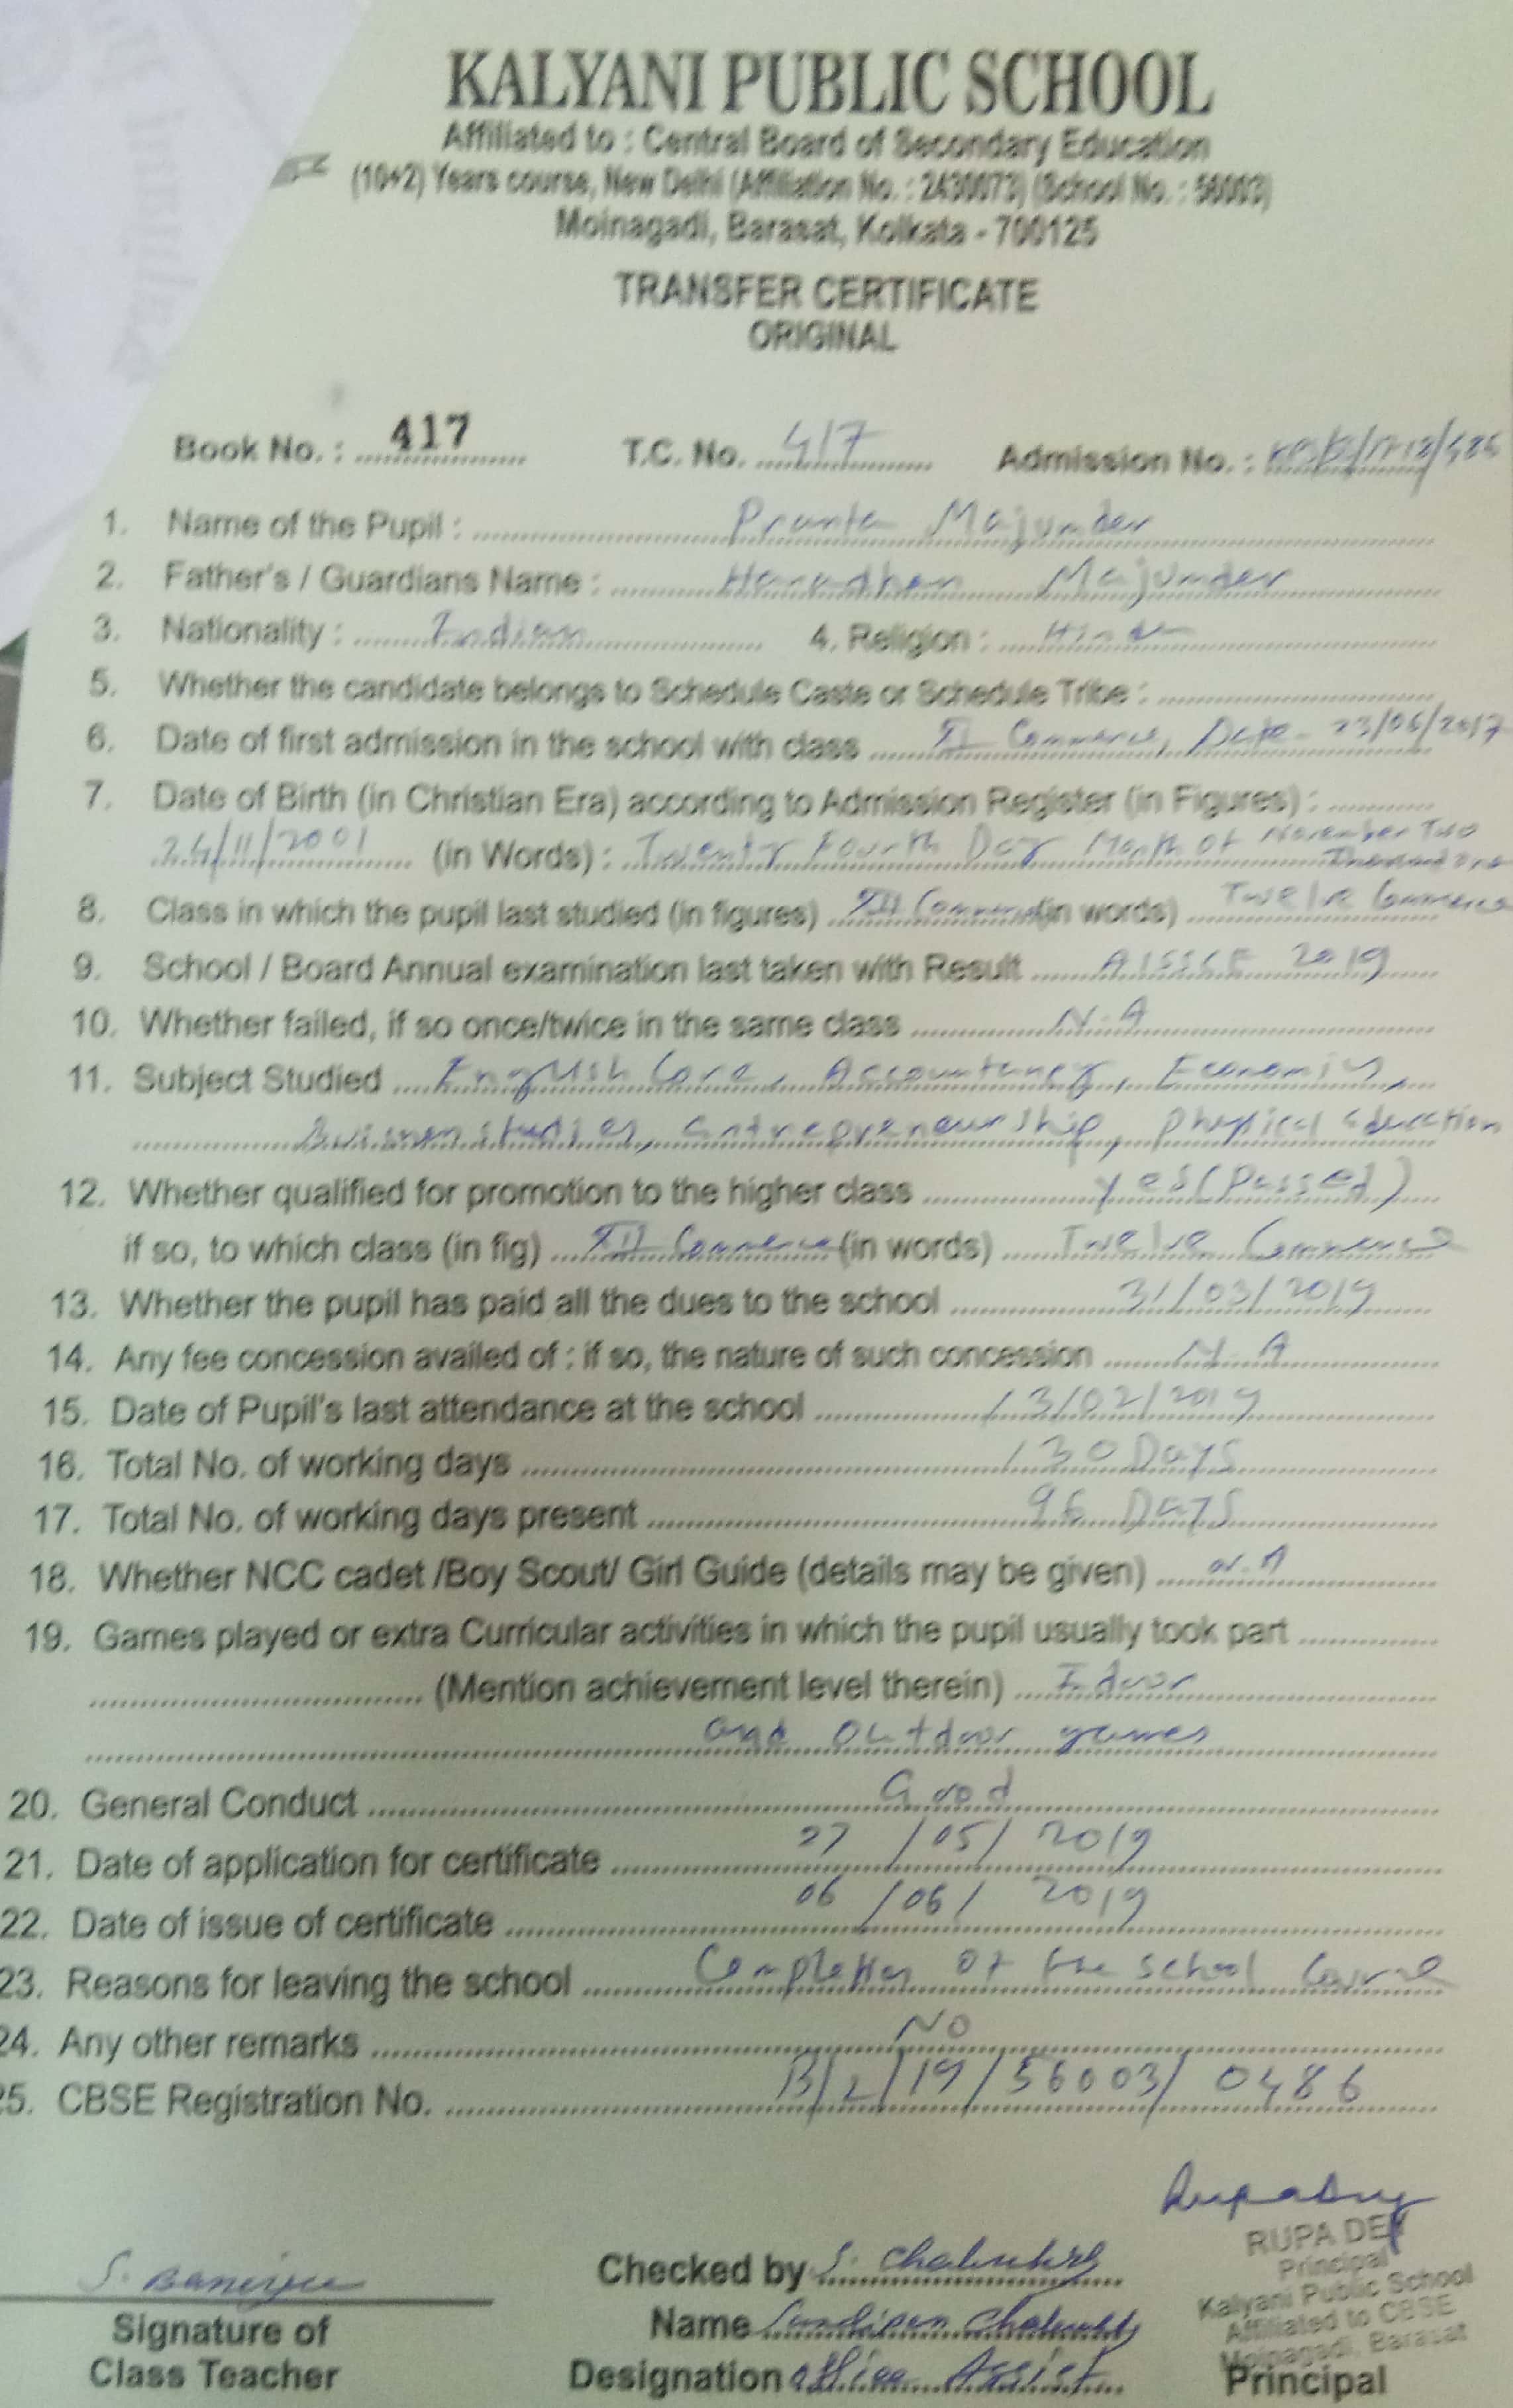 KALYANI PUBLIC SCHOOL
Affiliated to : Central Board of Secondary Education
(10+2) Years course, New Delhi (Affiliation No. : 2430073) (School No. : 56003)
Moinagadi, Barasat, Kolkata - 700125
TRANSFER CERTIFICATE
ORIGINAL
Book No. : 417 T.C. No. 417 Admission No. :
1. Name of the Pupil : Pranta Majumder
2. Father's / Guardians Name : Haradhan Majumder
3. Nationality : Indian 4. Religion : Hindu
5. Whether the candidate belongs to Schedule Caste or Schedule Tribe :
6. Date of first admission in the school with class XI Commerce, Date - 23/06/2017
7. Date of Birth (in Christian Era) according to Admission Register (in Figures) :
24/11/2001 (in Words) : Twenty Fourth Day Month of November Two
Thousand one
8. Class in which the pupil last studied (in figures) XII Commerce (in words) Twelve Commerce
9. School / Board Annual examination last taken with Result AISSCE 2019
10. Whether failed, if so once/twice in the same class N.A
11. Subject Studied English Core, Accountancy, Economics,
Business studies, Entrepreneurship, Physical Education
12. Whether qualified for promotion to the higher class Yes (Passed)
if so, to which class (in fig) XII Commerce (in words) Twelve Commerce
13. Whether the pupil has paid all the dues to the school 31/03/2019
14. Any fee concession availed of : if so, the nature of such concession N.A
15. Date of Pupil's last attendance at the school 13/02/2019
16. Total No. of working days 130 Days
17. Total No. of working days present 96 Days
18. Whether NCC cadet /Boy Scout/ Girl Guide (details may be given) N.A
19. Games played or extra Curricular activities in which the pupil usually took part
(Mention achievement level therein) Indoor
and outdoor games
20. General Conduct Good
21. Date of application for certificate 27/05/2019
22. Date of issue of certificate 06/06/2019
23. Reasons for leaving the school Completion of the school Course
24. Any other remarks NO
25. CBSE Registration No. B/2/19/56003/0486
S. Banerjee
Signature of
Class Teacher
Checked by S. Chakraborty
Name Sandipan Chakraborty
Designation Office Assist.
RUPA DEY
Principal
Kalyani Public School
Affiliated to CBSE
Moinagadi, Barasat
Principal